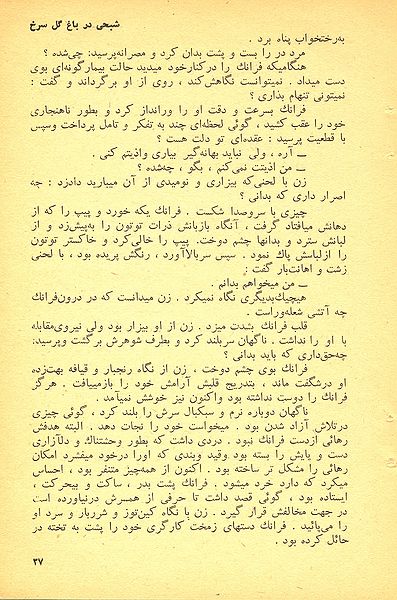 شبحی در باغ گل سرخ
به‌رختخواب پناه برد .
مرد در را بست و پشت بدان کرد و مصرانه‌پرسید: چی‌شده ؟
هنگامیکه فرانك را درکنارخود میدید حالت بیمارگونه‌ای بوی
دست میداد . نمیتوانست نگاهش‌کند ، روی از او برگرداند و گفت :
نمیتونی تنهام بذاری ؟
فرانك بسرعت و دقت او را ورانداز کرد و بطور ناهنجاری
خود را عقب کشید ، گوئی لحظه‌ای چند به تفکر و تامل پرداخت وسپس
با قطعیت پرسید : عقده‌ای تو دلت هست ؟
ـ آره ، ولی نباید بهانه‌گیر بیاری واذیتم کنی .
ـ من اذیتت نمی‌کنم ، بگو ، چه‌شده ؟
زن با لحنی‌که بیزاری و نومیدی از آن میبارید دادزد : چه
اصرار داری که بدانی ؟
چیزی با سروصدا شکست . فرانك یکه خورد و پیپ را که از
دهانش میافتاد گرفت ، آنگاه بازبانش ذرات توتون را به‌پیش‌زد و از
لبانش سترد و بدانها چشم دوخت. پیپ را خالی‌کرد و خاکستر توتون
را ازلباسش پاك نمود . سپس سربالاآورد ، رنگش پریده بود ، با لحنی
زشت و اهانت‌بار گفت :
ـ من میخواهم بدانم .
هیچیك‌بدیگری نگاه نمیکرد . زن میدانست که در درون‌فرانك
چه آتشی شعله‌وراست .
قلب فرانك بشدت میزد . زن از او بیزار بود ولی نیروی‌مقابله
با او را نداشت . ناگهان سربلند کرد و بطرف شوهرش برگشت وپرسید:
چه‌حق‌داری که باید بدانی ؟
فرانك بوی چشم دوخت ، زن از نگاه رنجبار و قیافه بهت‌زده
او درشگفت ماند ، بتدریج قلبش آرامش خود را بازمییافت . هرگز
فرانك را دوست نداشته بود واکنون نیز خوشش نمیآمد .
ناگهان دوباره نرم و سبکبال سرش را بلند کرد ، گوئی چیزی
درتلاش آزاد شدن بود . میخواست خود را نجات دهد . البته هدفش
رهائی ازدست فرانك نبود . دردی داشت که بطور وحشتناك و دلآزاری
دست و پایش را بسته بود.وقید وبندی که اورا درخود میفشرد امکان
رهائی را مشکل تر ساخته بود . اکنون از همه‌چیز متنفر بود ، احساس
میکرد که دارد خرد میشود . فرانك پشت بدر ، ساکت و بیحرکت ،
ایستاده بود ، گوئی قصد داشت تا حرفی از همسرش درنیاورده است
در جهت مخالفش قرار گیرد . زن با نگاه کین‌توز و شرربار و سرد او
را می‌پائید . فرانك دستهای زمخت کارگری خود را پشت به تخته در
حائل کرده بود .
۳۷